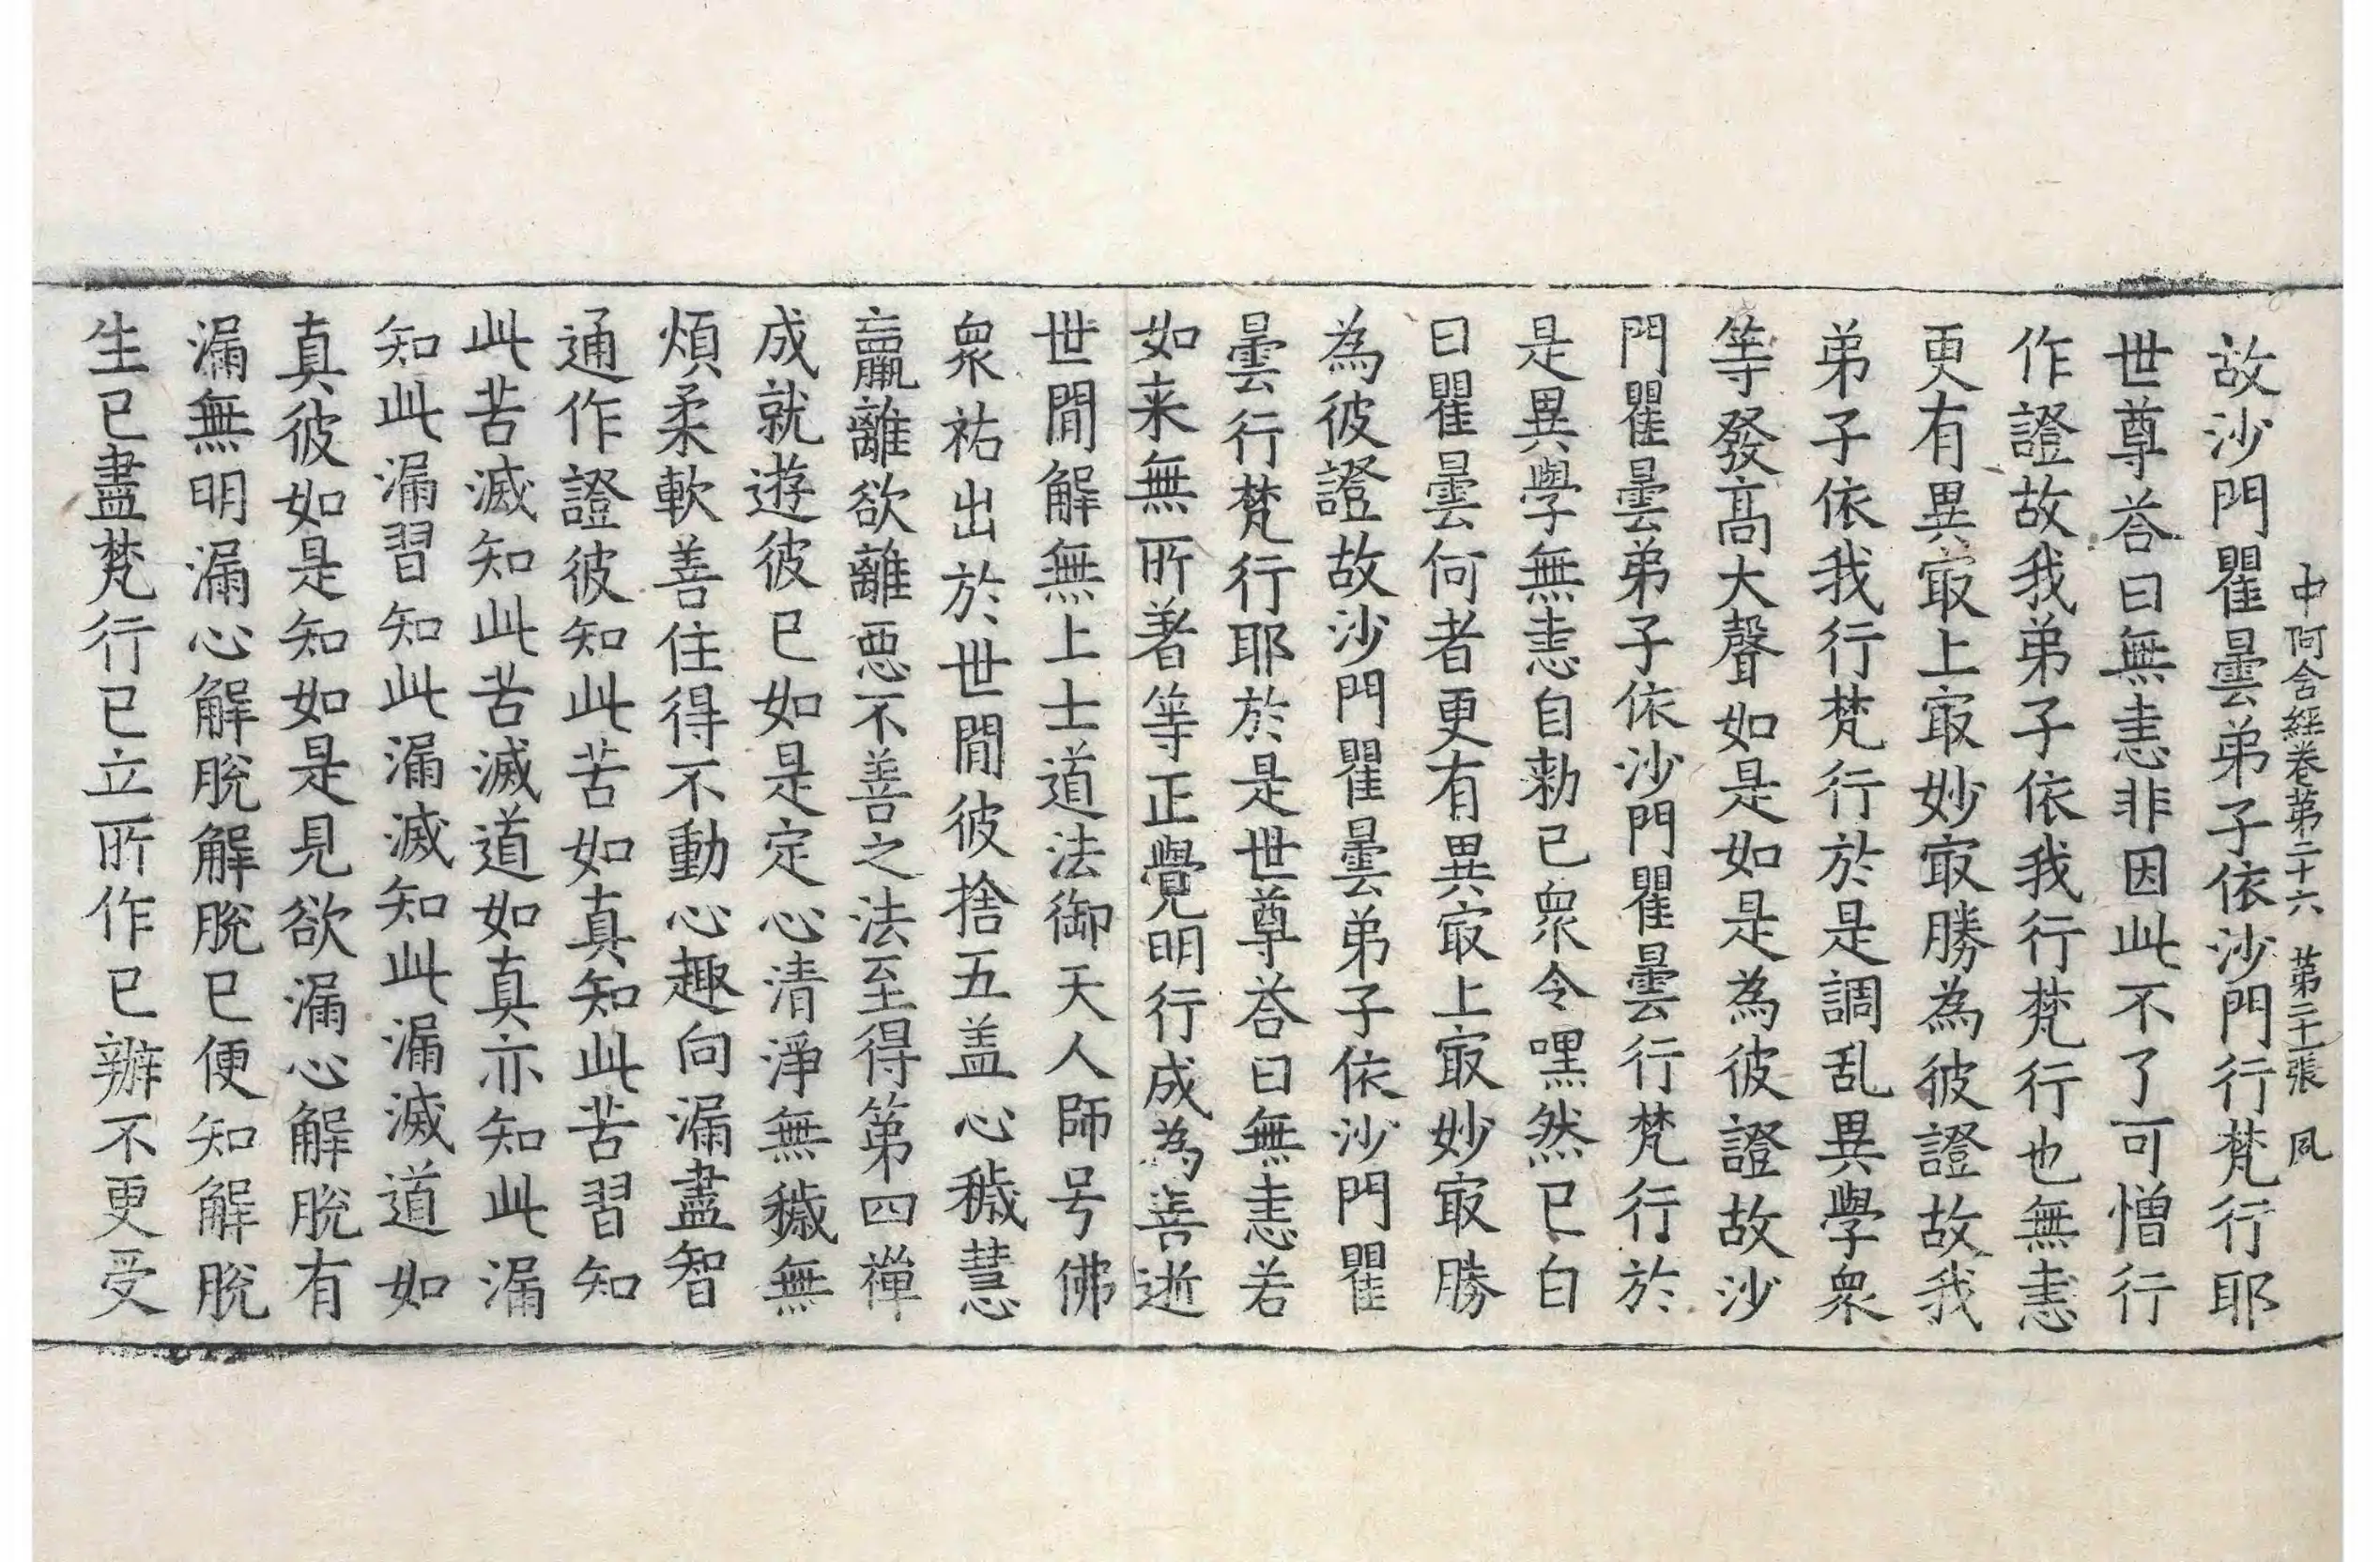 中阿含經卷第二十六 第二十二張 夙
故沙門瞿曇弟子依沙門行梵行耶
世尊荅曰無恚非因此不了可憎行
作證故我弟子依我行梵行也無恚
更有異㝡上㝡妙㝡勝為彼證故我
弟子依我行梵行於是調乱異學衆
等發髙大聲如是如是為彼證故沙
門瞿曇弟子依沙門瞿曇行梵行於
是異學無恚自勑已衆令嘿然已白
曰瞿曇何者更有異㝡上㝡妙㝡勝
為彼證故沙門瞿曇弟子依沙門瞿
曇行梵行耶於是世尊荅曰無恚若
如来無所著等正覺明行成為善逝
世間解無上士道法御天人師号佛
衆祐出於世間彼捨五盖心穢慧
羸離欲離惡不善之法至得第四禪
成就遊彼已如是定心清淨無穢無
煩柔軟善住得不動心趣向漏盡智
通作證彼知此苦如真知此苦習知
此苦滅知此苦滅道如真亦知此漏
知此漏習知此漏滅知此漏滅道如
真彼如是知如是見欲漏心解脫有
漏無明漏心解脫解脫已便知解脫
生已盡梵行已立所作已辦不更受